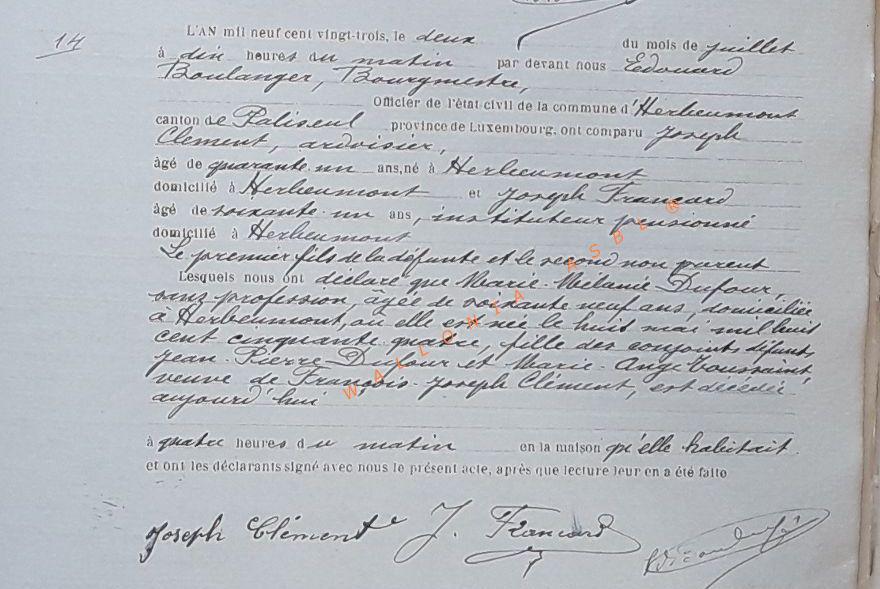 14
L'AN mil neuf cent vingt-trois, le deux du mois de juillet
à dix heures du matin par devant nous Edouard
Boulanger, Bourgmestre,
Officier de l'état civil de la commune d'Herbeumont
canton de Paliseul province de Luxembourg, ont comparu Joseph
Clément, ardoisier,
âgé de quarante-un ans, né à Herbeumont
domicilié à Herbeumont et Joseph Francard
âgé de soixante-un ans, instituteur pensionné
domicilié à Herbeumont
Le premier fils de la défunte et le second non parent
Lesquels nous ont déclaré que Marie-Mélanie Dufour,
sans profession, âgée de soixante neuf ans, domiciliée
à Herbeumont, où elle est née le huit mai mil huit
cent cinquante quatre, fille des conjoints défunts
Jean-Pierre Dufour et Marie-Ange Toussaint
veuve de François-Joseph Clément, est décédée
aujourd'hui
à quatre heures du matin en la maison qu'elle habitait.
et ont les déclarants signé avec nous le présent acte, après que lecture leur en a été faite
Joseph Clément J. Francard
WALLONIA ASBL ®